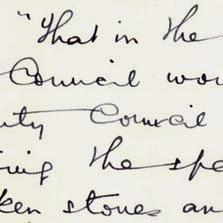 "That in the
Council wou
nty Council
ing the spe
ken stones an